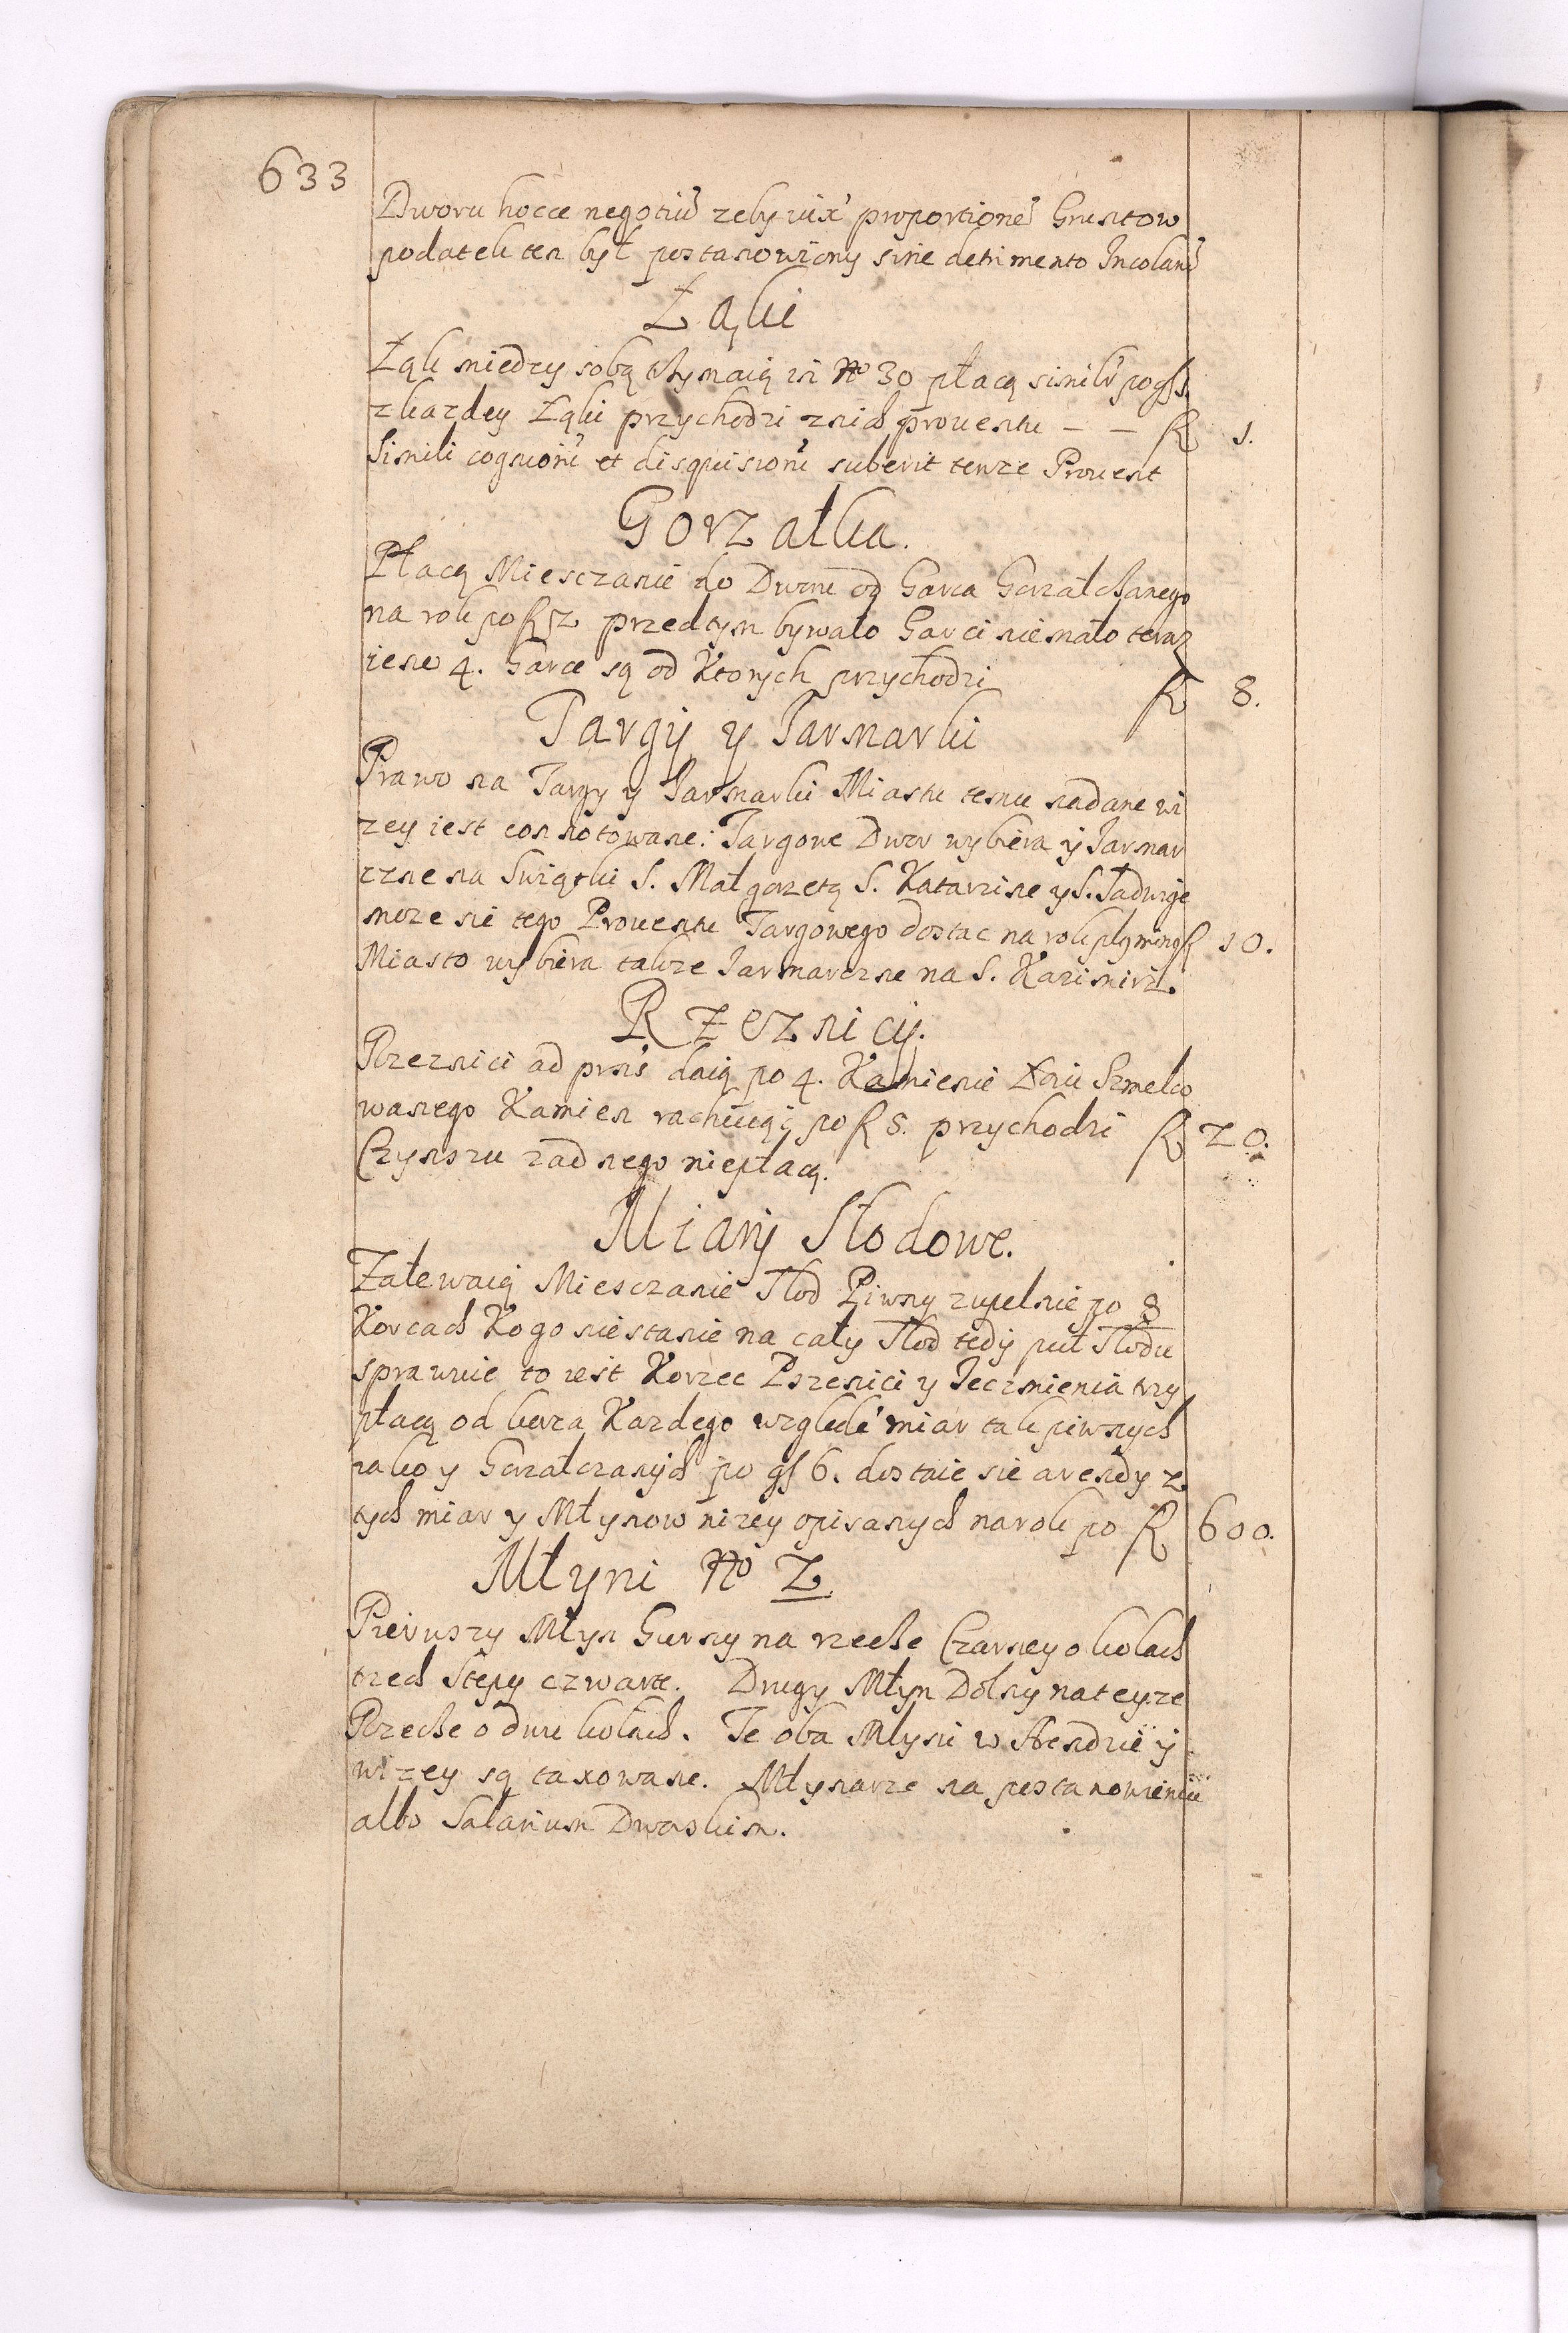 633
Dworu hocce negotiu zeby iux proportione Gruntow
podatek ten był postanowiony sine detrimento Incolaru
Łąki
Łąk miedzy sobą trzymaią in No 30 płacą simili po gs 1
z kazdey Łąki przychodzi z nich prouentu — — R 1.
Simili cognitioni et disquisitioni suberit tenze Prouent
Gorzałka.
Płacą Miesczanie do Dworu od Garca Gorzałczanego
na rok po R 2 przedtym bywało Garci niemało teraz
ieno 4. Garce są od Ktorych przychodzi R 8.
Targÿ y Jarmarki
Prawo na Targy y Jarmarki Miastu temu nadane wi
zey iest connotowane: Targowe Dwor wybiera ÿ Jarmar
czne na Swiątki S. Małgorzetą S. Katarzine y S. Jadwige
moze sie tego Prouentu Targowego dostac na rok plg ming R 10.
Miasto wybiera takze Jarmarczne na S. Kazimirz.
Rzeznicÿ.
Rzeznici ad prns daią po 4. Kamienie Łoiu Szmelco
wanego Kamien rachuiąc po R 5. przychodzi R 20.
Czynszu zadnego niepłacą.
Miarÿ Słodowe.
Zalewaią Miesczanie Słod Piwny zupelnie po 8
Korcach Kogo niestanie na cały Słod tedÿ puł Słodu
sprawuie to iest Korzec Pszenici y Jeczmienia trzy
płacą od korca Kazdego wzglede miar tak piwnych
iako y Gorzałczanÿch po gs 6. dostaie sie arendy z
tych miar y Młynow nizey opisanych na rok po R 600.
Młyni No 2
Pierwszy Młyn Gurny na rzecke Czarney o kołach
trzech Stępy czwarte. Drugy Młyn Dolny na teyze
Rzecke o dwu kołach. Te oba Młyni w Arendzie ÿ
wizey są taxowane. Młynarze na postanowieniu
albo Salarium Dworskim.